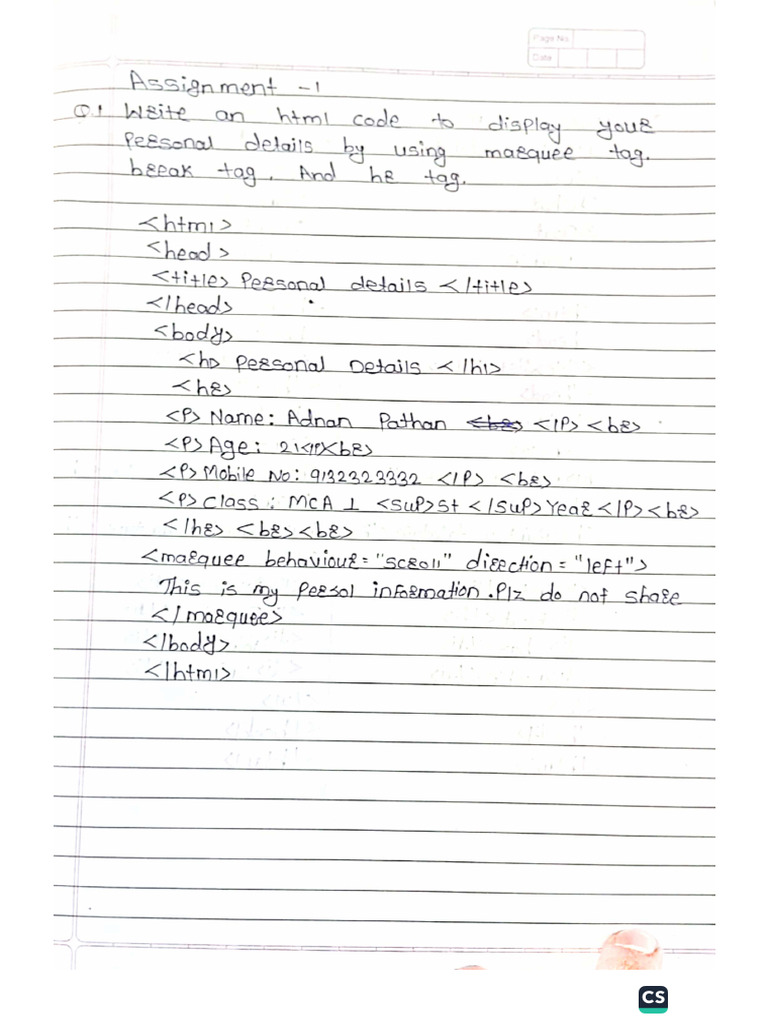 Page No.
Date
Assignment - 1
Q.1 Write an html code to display your
Personal details by using marquee tag.
break tag. And hr tag.
<html>
<head>
<title> Personal details </title>
</head>
<body>
<h1> Personal Details </h1>
<hr>
<P> Name: Adnan Pathan <br> </P> <br>
<P> Age: 21</P><br>
<P> Mobile No: 9132323332 </P> <br>
<P> Class: MCA 1 <sup> st </sup> Year </P> <br>
</hr> <br> <br>
<marquee behaviour="scroll" direction="left">
This is my Persol information. Plz do not share
</marquee>
</body>
</html>
CS